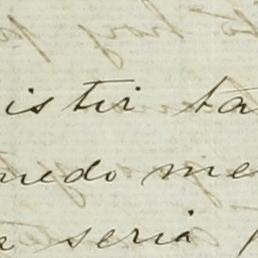 istir ta
uedo me
a seria